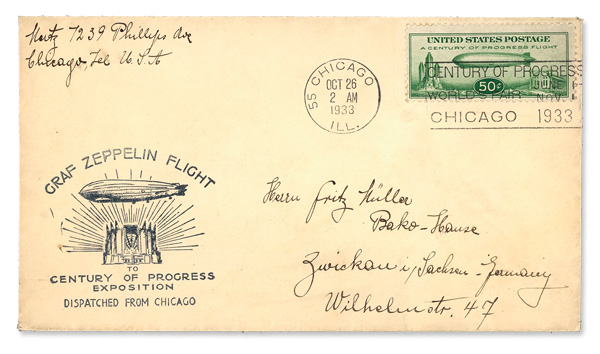 Mertz 7239 Phillips Ave
Chicago Ill U.S.A
55 CHICAGO
OCT 26
2 AM
1933
ILL.
UNITED STATES POSTAGE
A CENTURY OF PROGRESS FLIGHT
50¢
CENTURY OF PROGRESS
WORLD'S FAIR
JUNE 1
NOV. 1
CHICAGO 1933
GRAF ZEPPELIN FLIGHT
TO
CENTURY OF PROGRESS
EXPOSITION
DISPATCHED FROM CHICAGO
Herrn Fritz Müller
Bako-Hause
Zwickau i/Sachsen-Germany
Wilhelmstr. 47